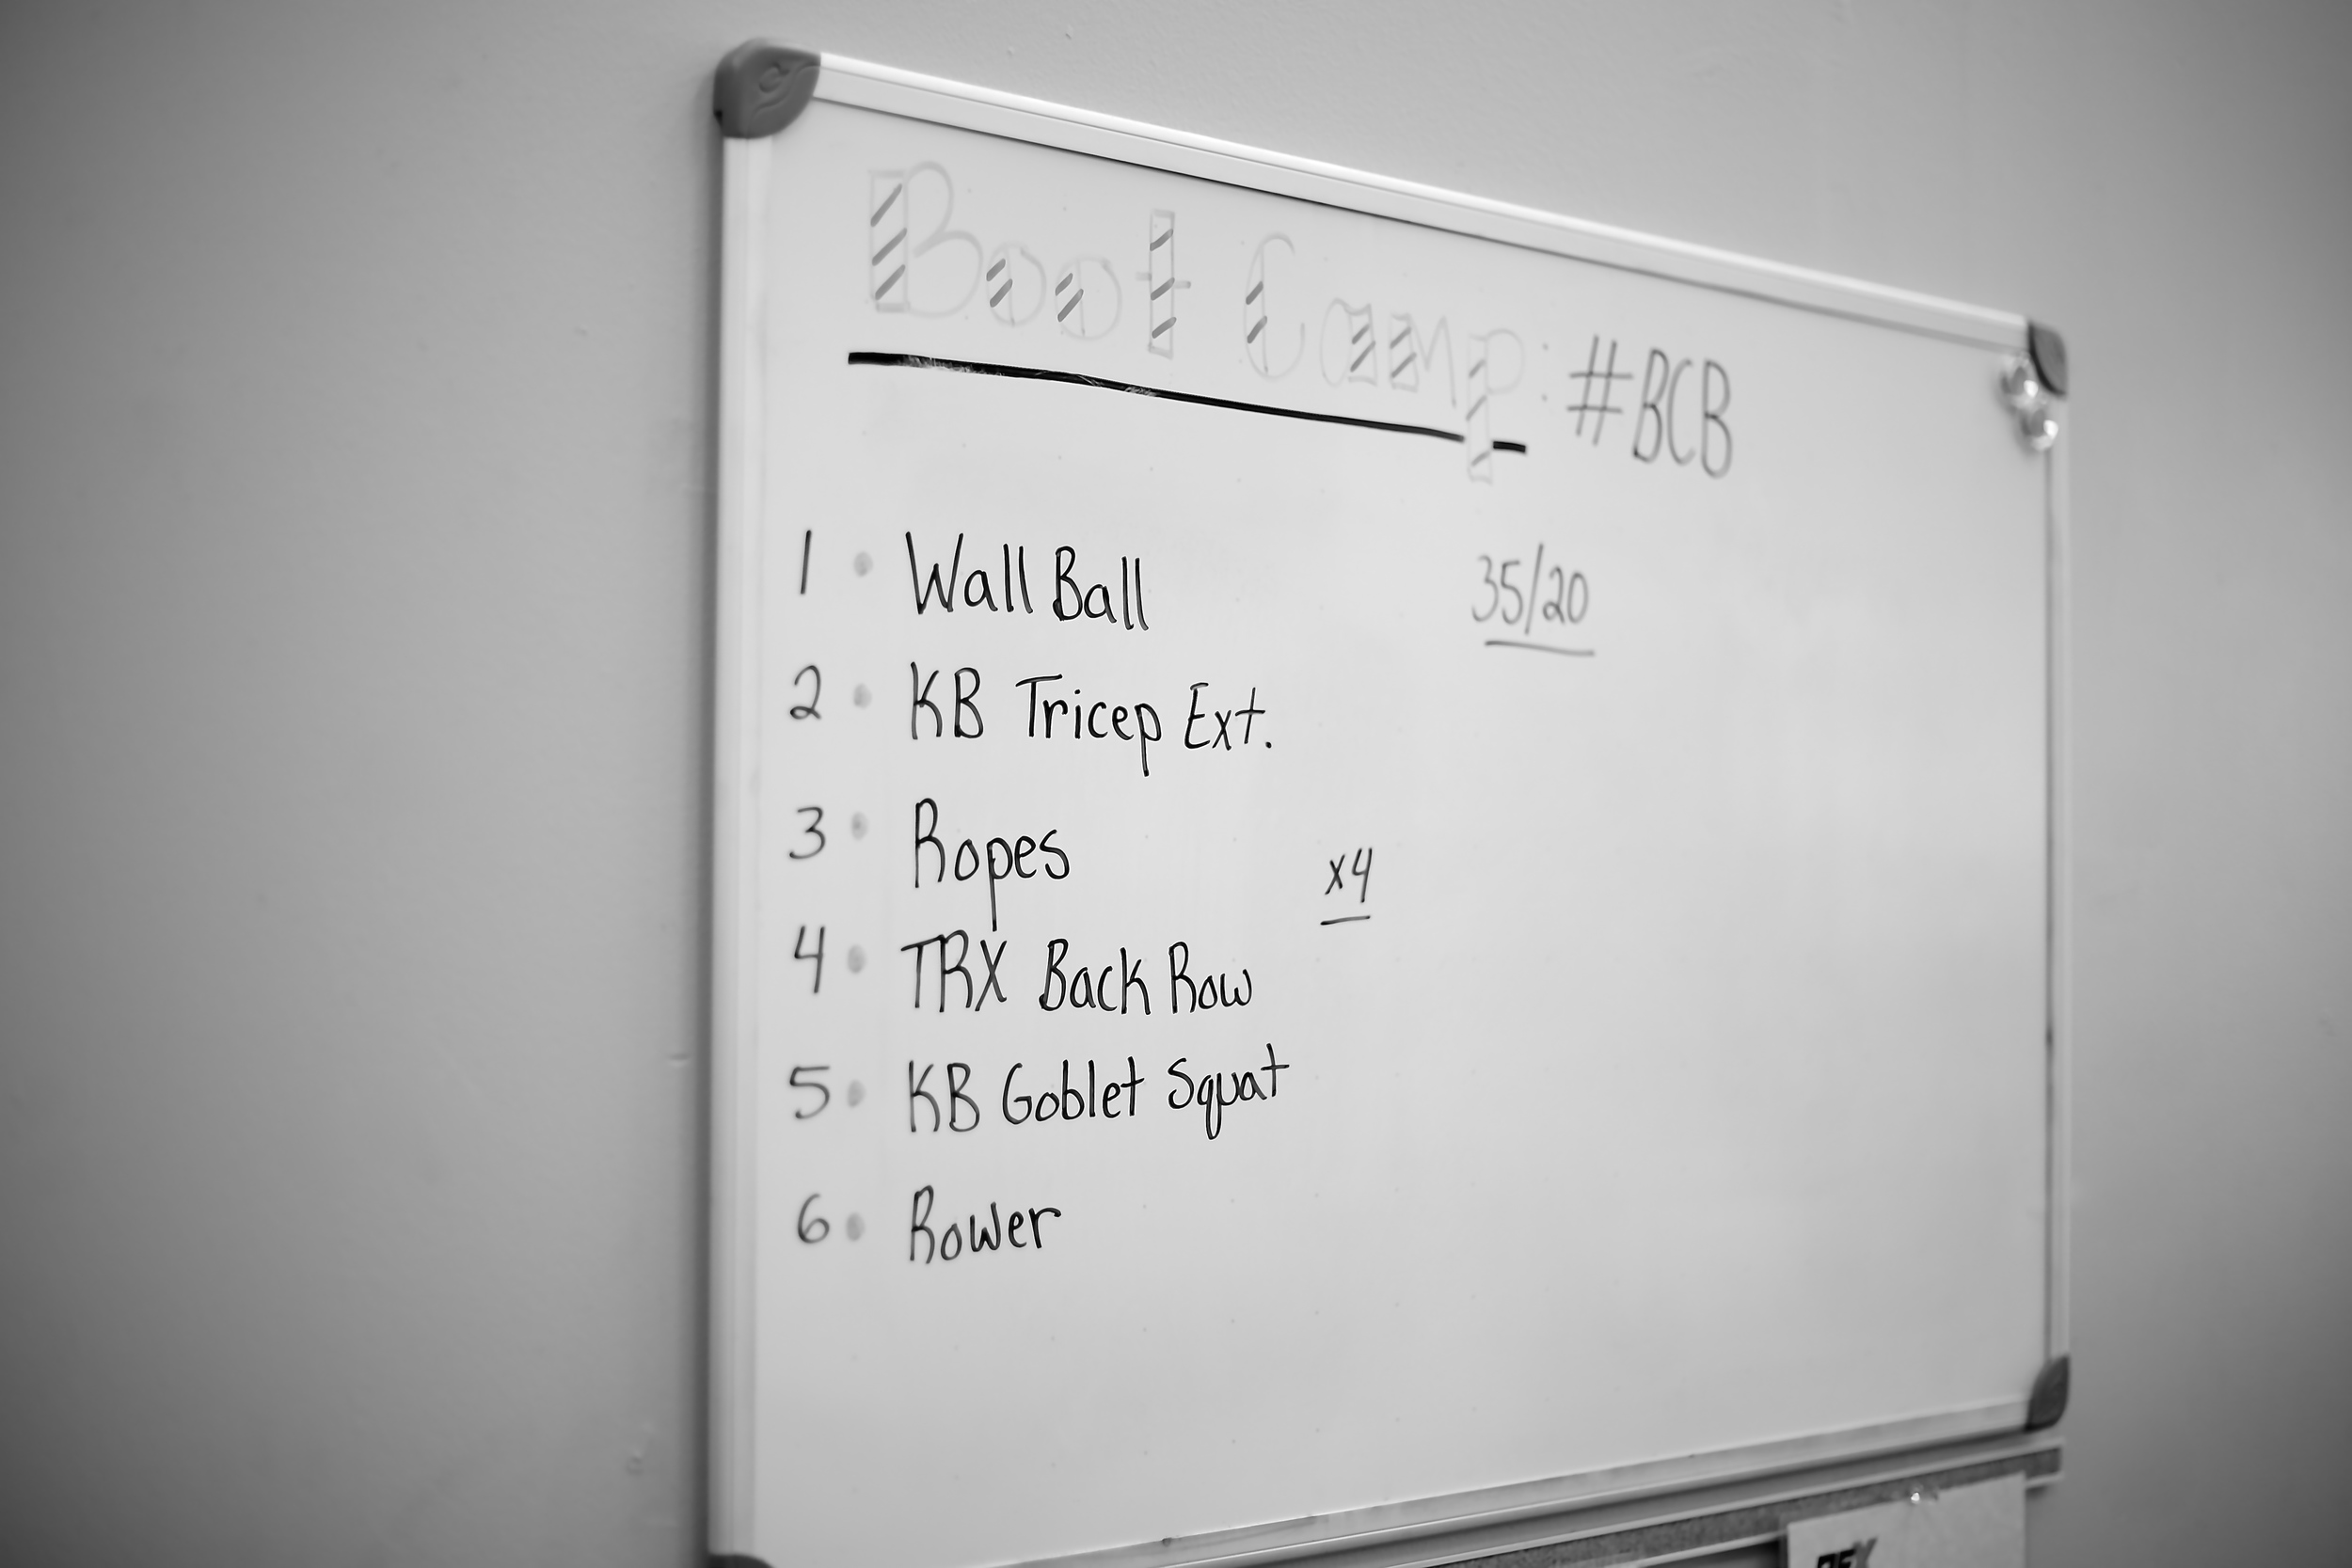 Boot Camp: #BCB
1 • Wall Ball
35/20
2 • KB Tricep Ext.
3 • Ropes
x4
4 • TRX Back Row
5 • KB Goblet Squat
6 • Rower